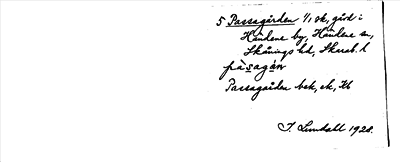 5 Passagården 1/1 sk, gård i
Händene by, Händene sn,
Skånings hd, Skarab. l
påsagán
Passagården bek, ek, Kb
J. Lundahl 1928.